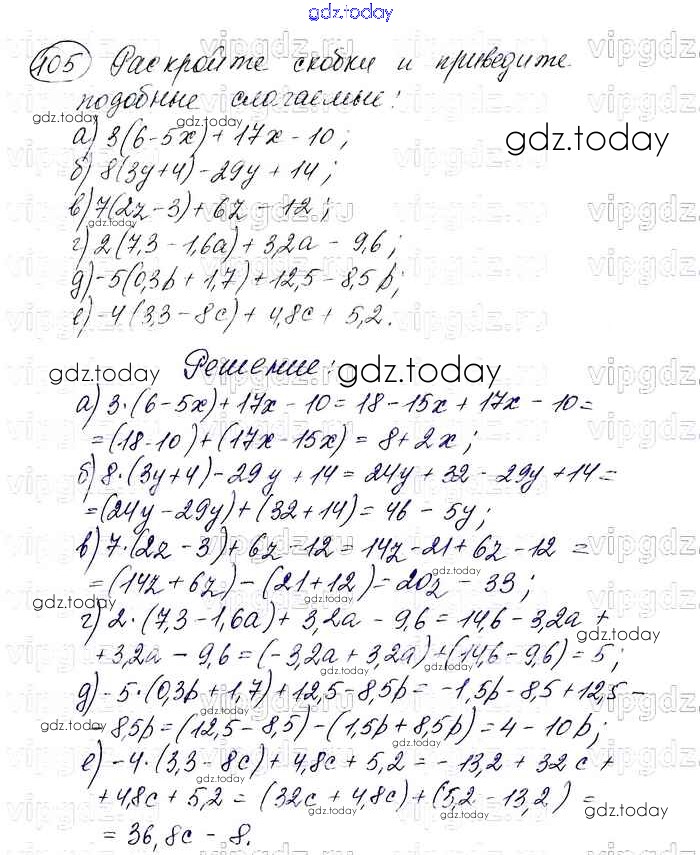 gdz.today
105 Раскройте скобки и приведите
подобные слагаемые:
а) 3(6-5x)+17x-10;
б) 8(3y+4)-29y+14;
в) 7(2z-3)+6z-12;
г) 2(7,3-1,6a)+3,2a-9,6;
д) -5(0,3p+1,7)+12,5-8,5p;
е) -4(3,3-8c)+4,8c+5,2.
Решение:
а) 3·(6-5x)+17x-10=18-15x+17x-10=
=(18-10)+(17x-15x)=8+2x;
б) 8·(3y+4)-29y+14=24y+32-29y+14=
=(24y-29y)+(32+14)=46-5y;
в) 7·(2z-3)+6z-12=14z-21+6z-12=
=(14z+6z)-(21+12)=20z-33;
г) 2·(7,3-1,6a)+3,2a-9,6=14,6-3,2a+
+3,2a-9,6=(-3,2a+3,2a)+(14,6-9,6)=5;
д) -5·(0,3p+1,7)+12,5-8,5p=-1,5p-8,5+12,5-
-8,5p=(12,5-8,5)-(1,5p+8,5p)=4-10p;
е) -4·(3,3-8c)+4,8c+5,2=-13,2+32c+
+4,8c+5,2=(32c+4,8c)+(5,2-13,2)=
=36,8c-8.